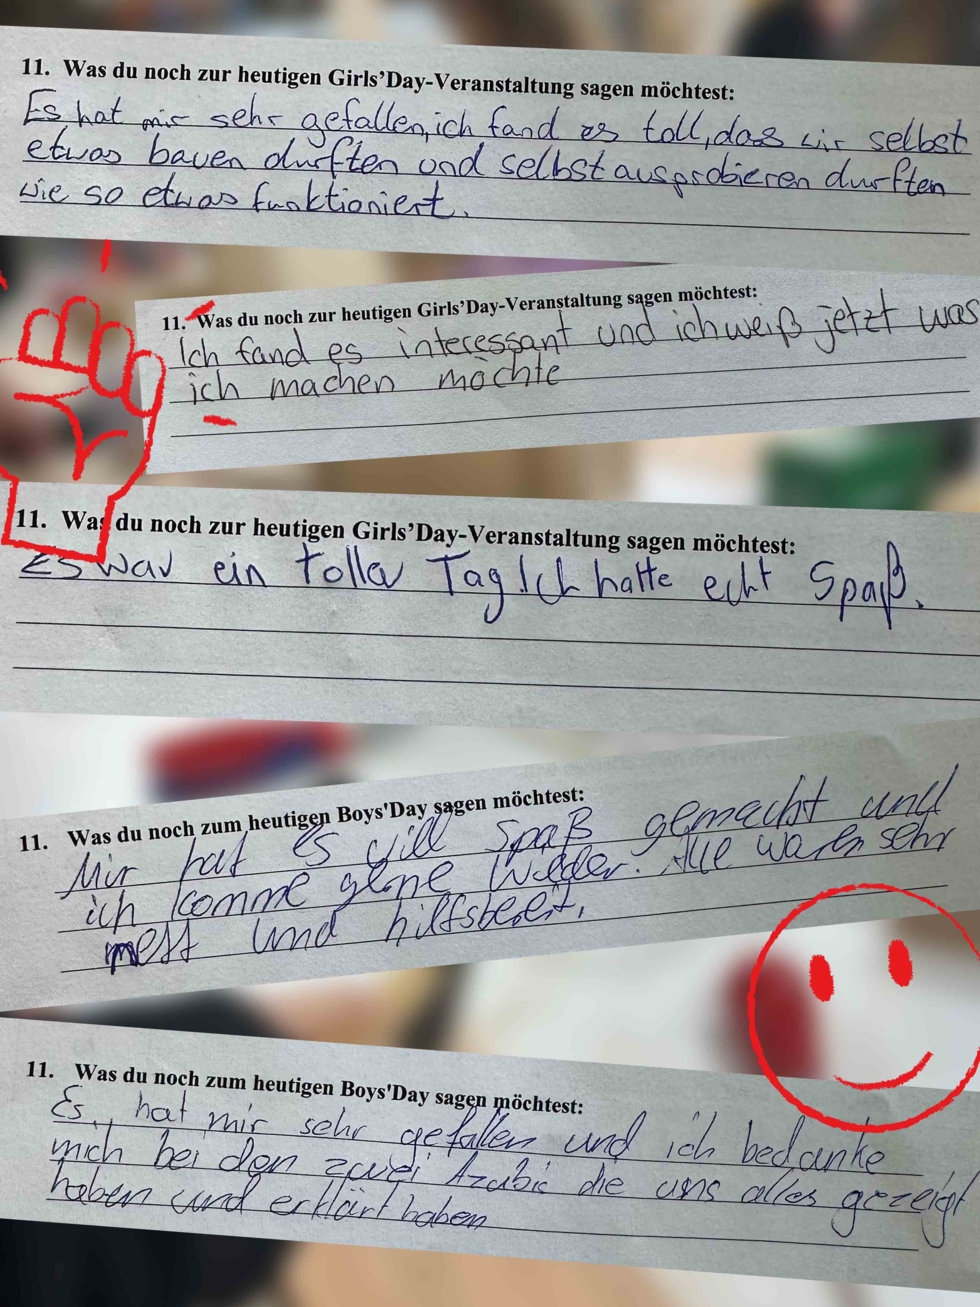 11. Was du noch zur heutigen Girls'Day-Veranstaltung sagen möchtest:
Es hat mir sehr gefallen, ich fand es toll, dass wir selbst
etwas bauen durften und selbst ausprobieren durften
wie so etwas funktioniert.
11. Was du noch zur heutigen Girls'Day-Veranstaltung sagen möchtest:
Ich fand es interessant und ich weiß jetzt was
ich machen möchte
11. Was du noch zur heutigen Girls'Day-Veranstaltung sagen möchtest:
Es war ein toller Tag. Ich hatte echt Spaß.
11. Was du noch zum heutigen Boys'Day sagen möchtest:
Mir hat es vill Spaß gemacht und
ich komme gerne wieder. Alle waren sehr
nett und hilfsbereit.
11. Was du noch zum heutigen Boys'Day sagen möchtest:
Es hat mir sehr gefallen und ich bedanke
mich bei den zwei Azubis die uns alles gezeigt
haben und erklärt haben